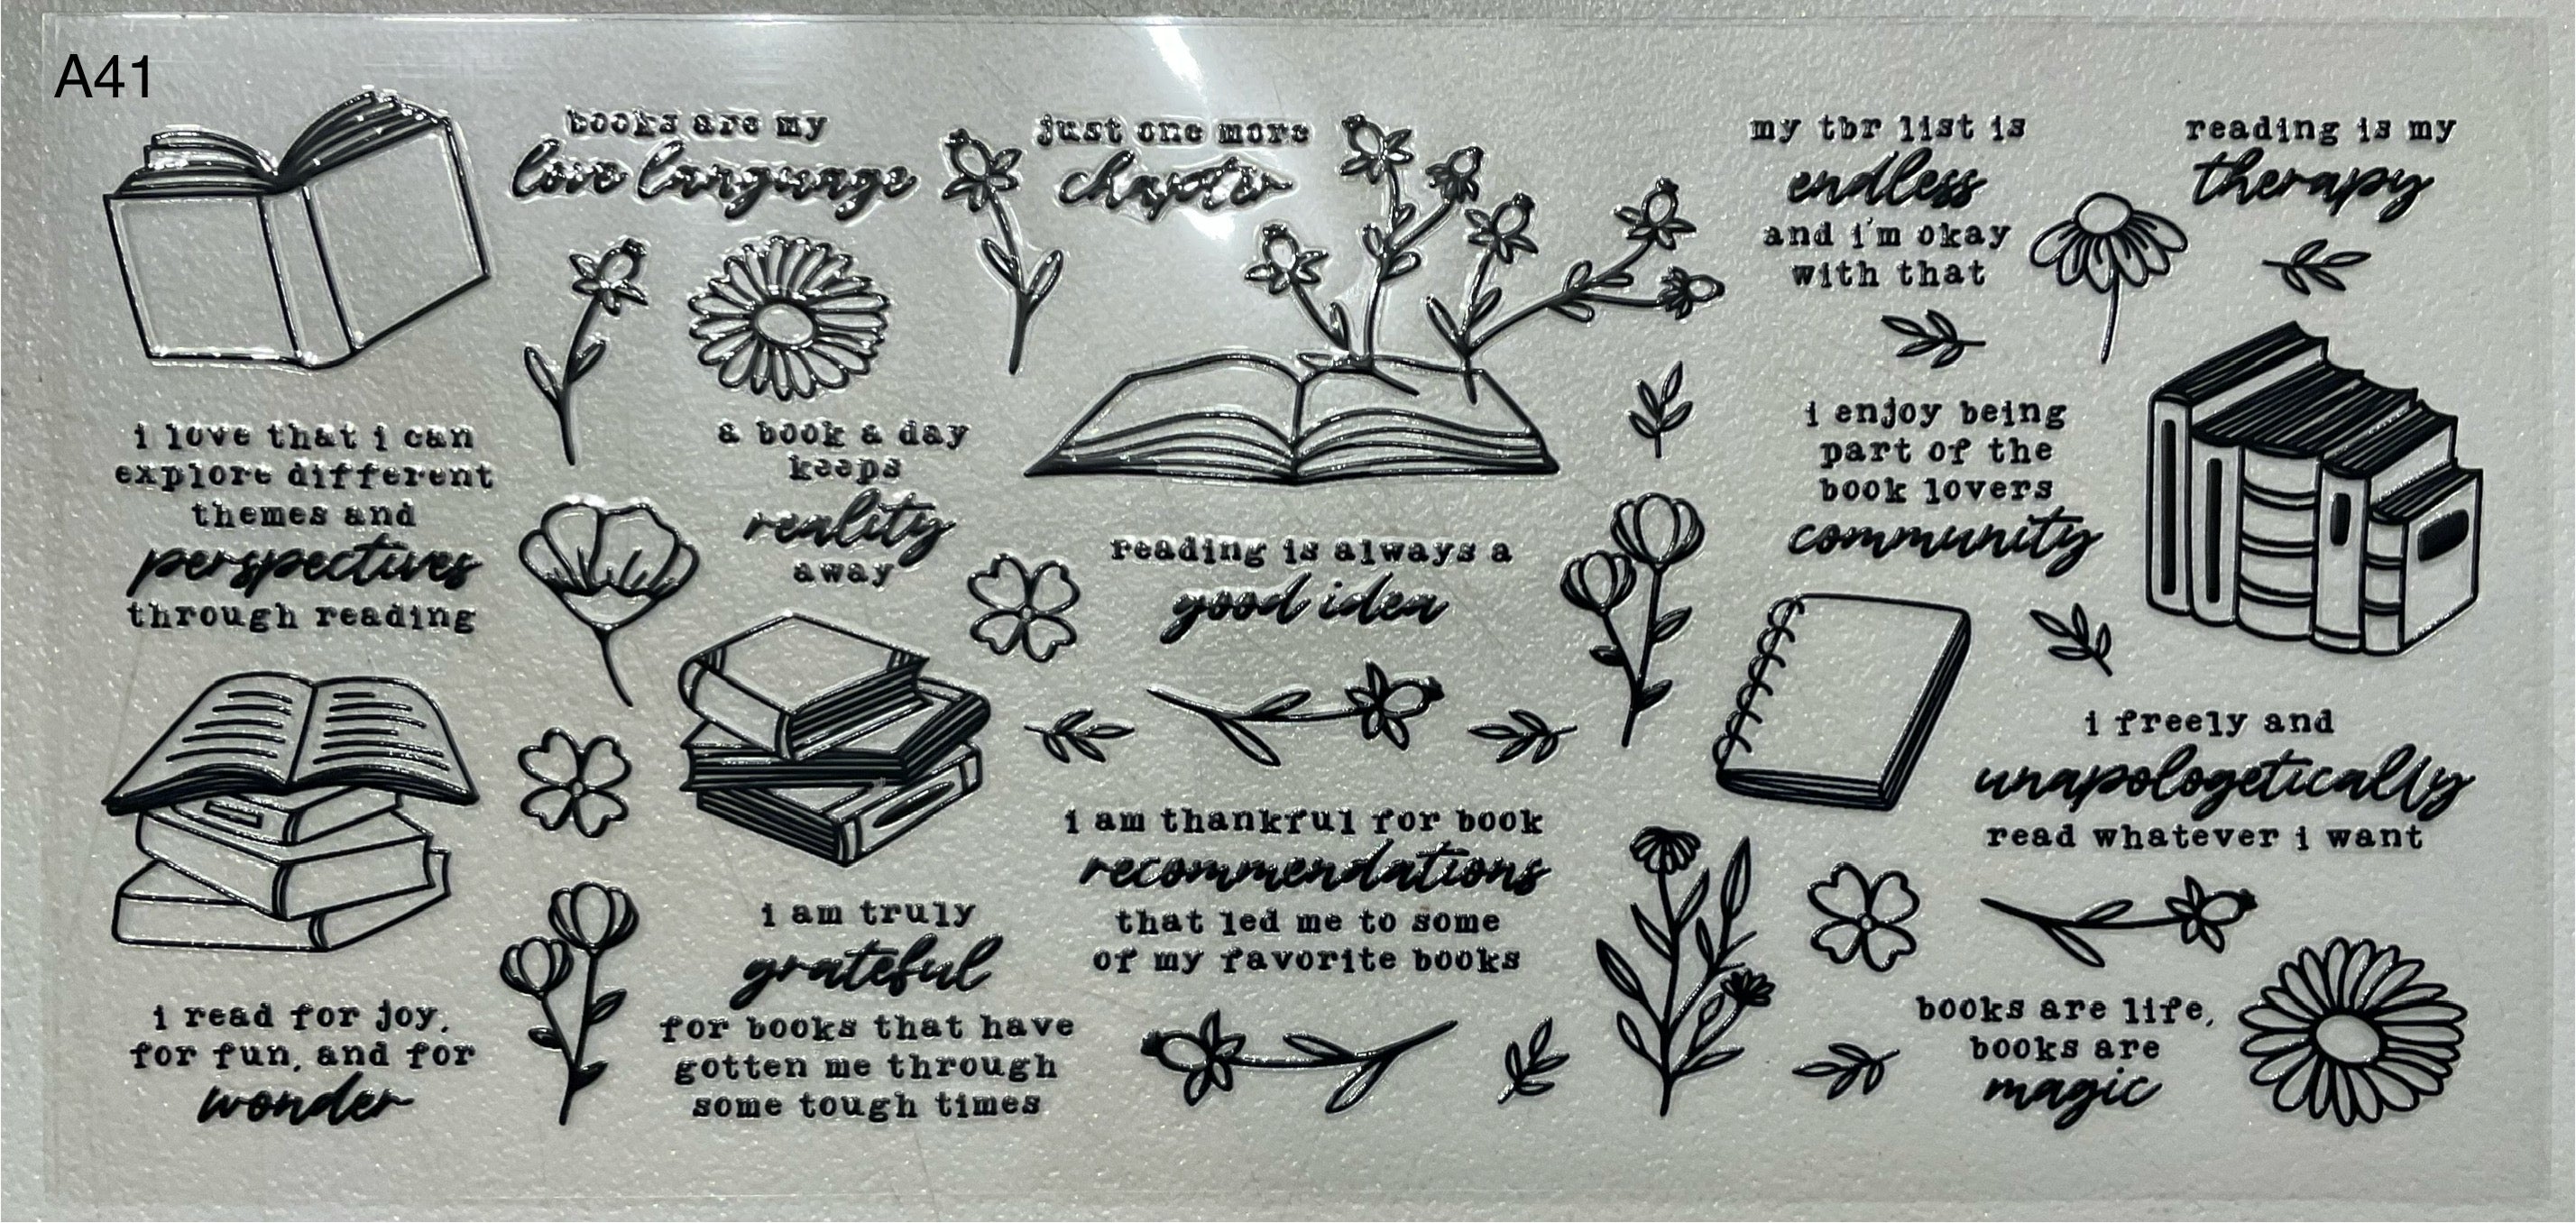 A41
books are my
love language
just one more
chapter
my tbr list is
endless
and i'm okay
with that
reading is my
therapy
i love that i can
explore different
themes and
perspectives
through reading
a book a day
keeps
reality
away
reading is always a
good idea
i enjoy being
part of the
book lovers
community
i freely and
unapologetically
read whatever i want
i am thankful for book
recommendations
that led me to some
of my favorite books
i am truly
grateful
for books that have
gotten me through
some tough times
i read for joy,
for fun, and for
wonder
books are life,
books are
magic